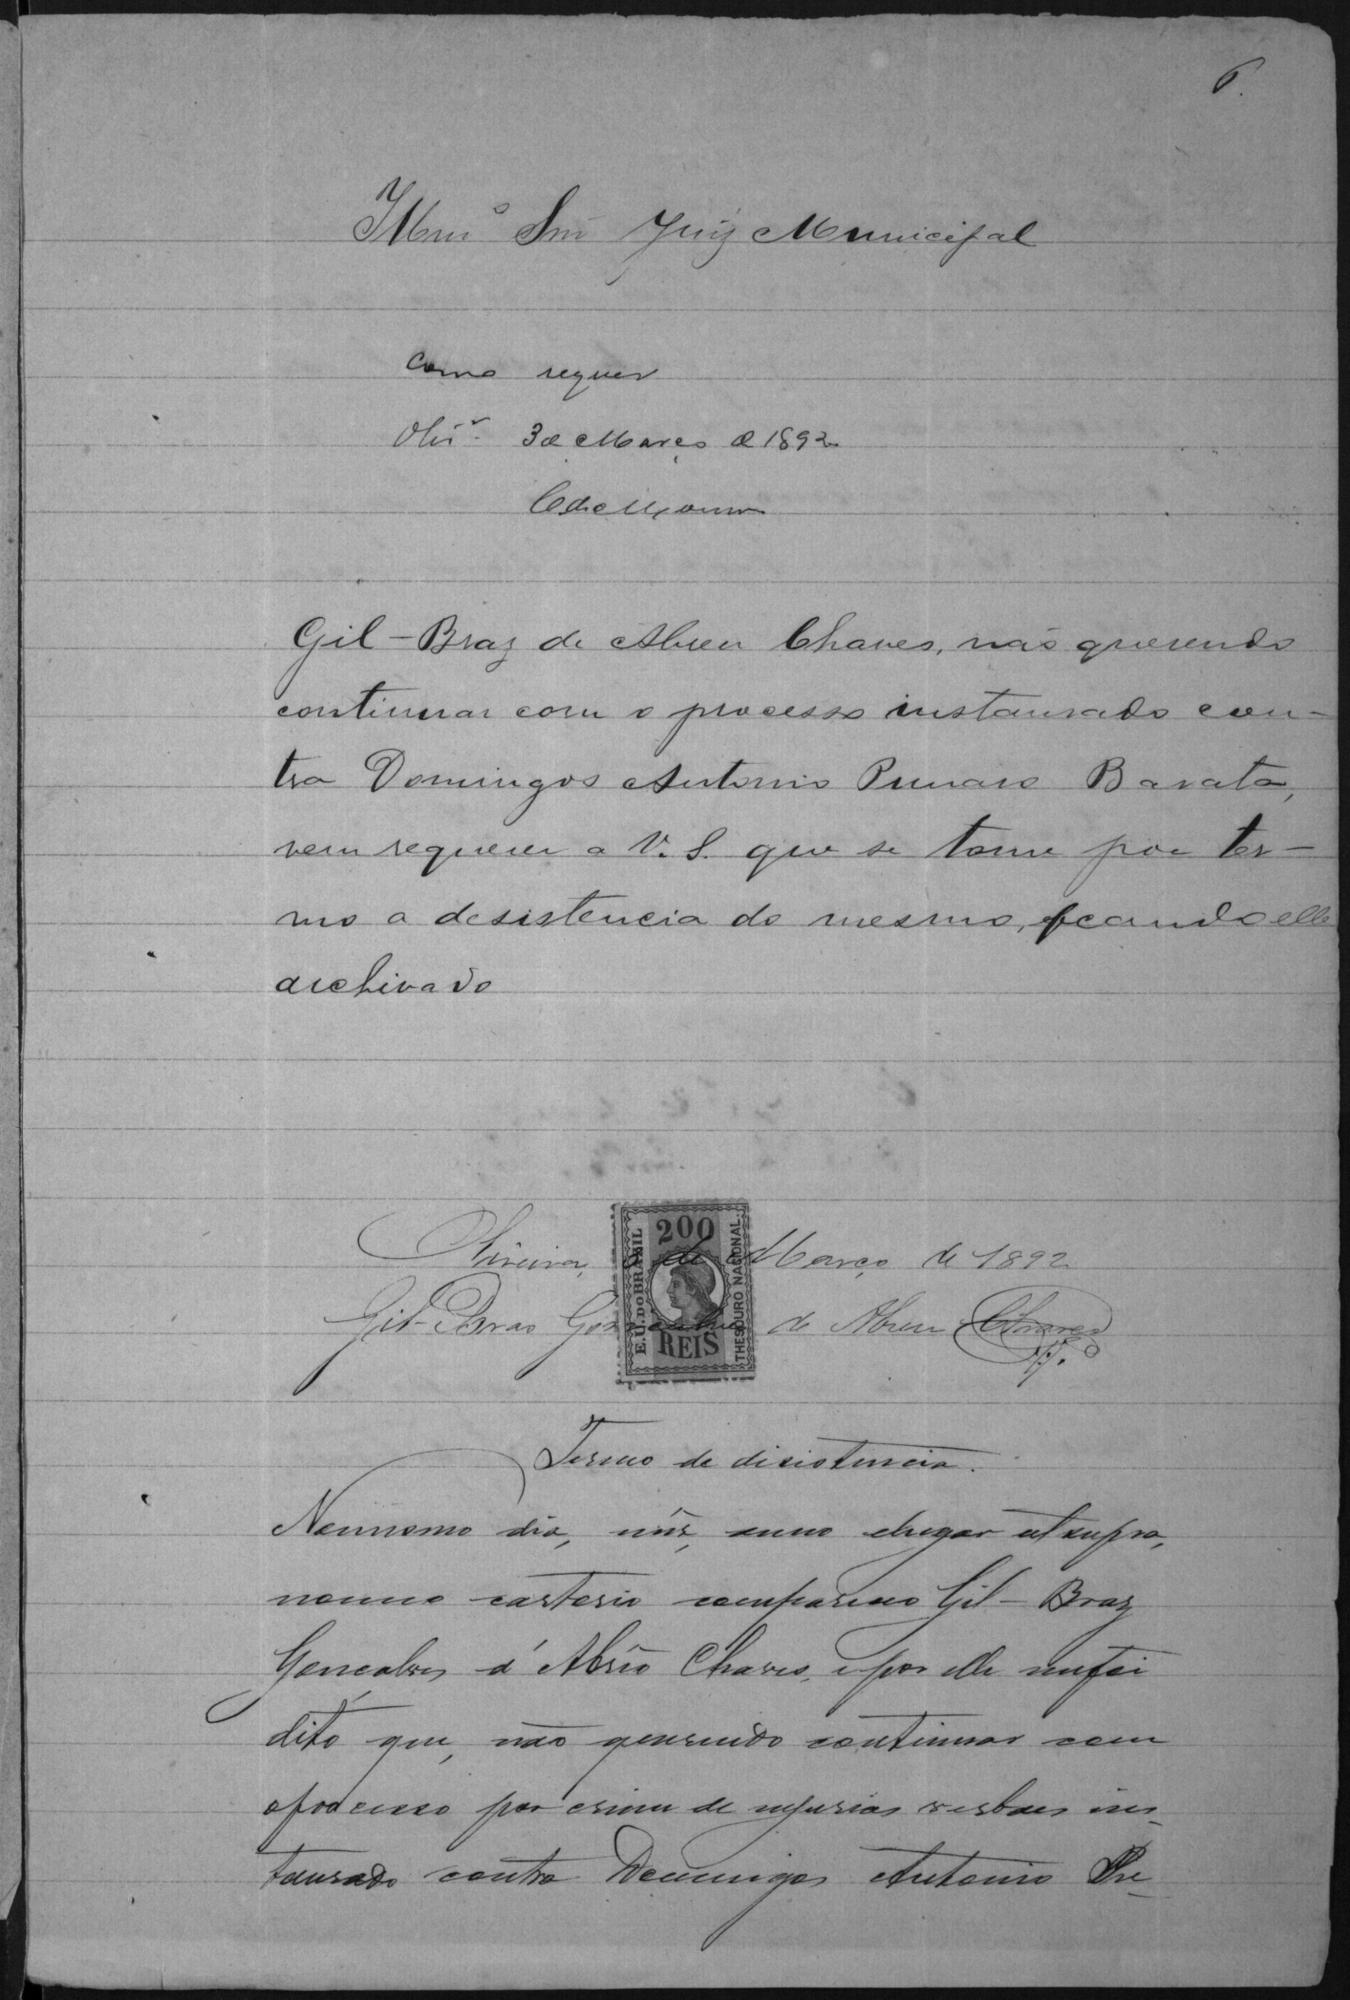 6.
Illmº Snr Juiz Municipal
Como requer
Olivrª 3 de Março de 1892
C de Moura
Gil-Braz de Abreu Chaves, não querendo
continuar com o processo instaurado con-
tra Domingos Antonio Barata,
vem requerer a V. S. que se tome por ter-
mo a desistencia do mesmo, ficando elle
archivado
Oliveira, 3 de Março de 1892
Gil-Braz Gonçalves de Abreu Chaves
200
E.U. DO BRASIL
THESOURO NACIONAL
REIS
Termo de disistencia.
No mesmo dia, mês, anno e lugar ut supra,
no meu cartorio compareceo Gil-Braz
Gonçalves d'Abrêo Chaves, e por elle me foi
dito que, não querendo continuar com
o processo por crime de injurias verbaes ins-
taurado contra Domingos Antonio